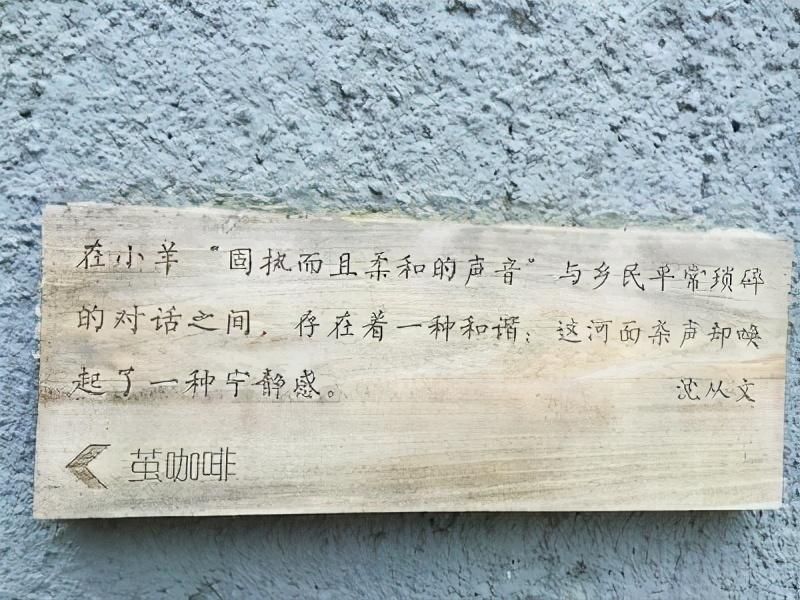 在小羊“固执而且柔和的声音”与乡民平常琐碎
的对话之间，存在着一种和谐；这河面杂声却唤
起了一种宁静感。
沈从文
茧咖啡